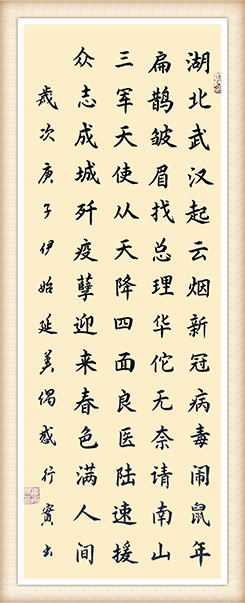 湖北武汉起云烟新冠病毒闹鼠年
扁鹊皱眉找总理华佗无奈请南山
三军天使从天降四面良医陆速援
众志成城歼疫孽迎来春色满人间
岁次庚子伊始延美偶感行宾书